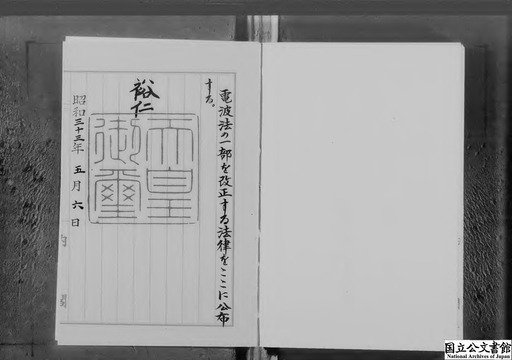 電波法の一部を改正する法律をここに公布
する。
裕仁
天皇
御璽
昭和三十三年 五月 六日
国立公文書館
National Archives of Japan